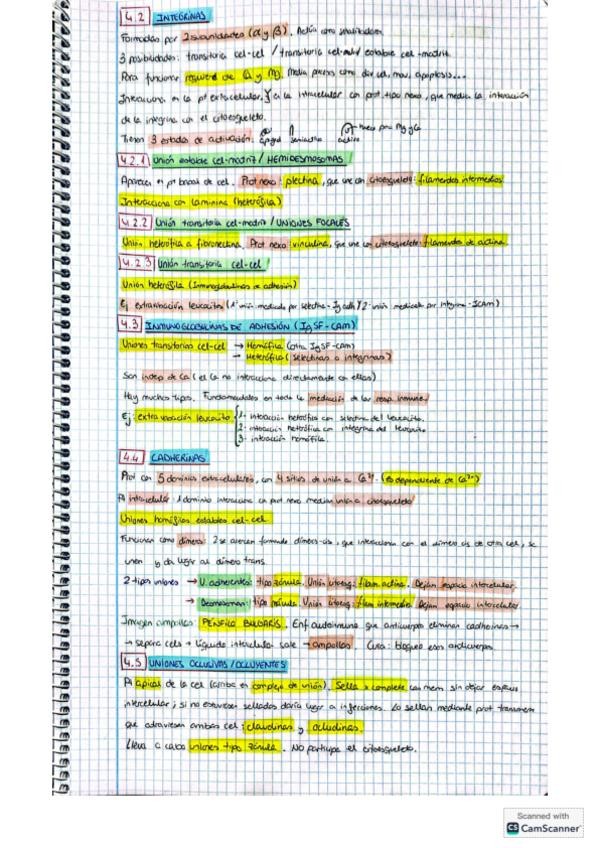 4.2 INTEGRINAS
Formadas por 2 subunidades (α y β). Actúa como señalizadora.
3 posibilidades: transitoria cel-cel / transitoria cel-mat / estable cel-matriz.
Para funcionar requieren de Ca y Mg. Media procesos como div cel, mov, apoptosis...
Interacciona en la pt extracelular, y en la intracelular con prot tipo nexo, que media la interacción
de la integrina con el citoesqueleto.
Tienen 3 estados de activación: plegad semiactivo activo nexo por Mg y Ca
4.2.1 Unión estable cel-matriz / HEMIDESMOSOMAS
Aparecen en pt basal de cel. Prot nexo: plectina, que une con citoesqueleto: filamentos intermedios
Interacciona con laminina (heterófila)
4.2.2 Unión transitoria cel-matriz / UNIONES FOCALES
Unión heterófila a fibronectina. Prot nexo: vinculina, que une con citoesqueleto: filamentos de actina.
4.2.3 Unión transitoria cel-cel
Unión heterófila (Inmunoglobulinas de adhesión)
Ej extravasación leucocitos (1ª unión mediada por selectina - / 2ª unión mediada por integrina - ICAM)
4.3 INMUNOGLOBULINAS DE ADHESIÓN (IgSF-CAM)
Uniones transitorias cel-cel → Homófila (otra IgSF-CAM)
→ Heterófila (selectinas o integrinas)
Son indep de Ca (el Ca no interacciona directamente con ellas)
Hay muchos tipos. Fundamentales en toda la mediación de las resp inmune.
Ej: extravasación leucocito 1- interacción heterófila con selectina del leucocito.
2- interacción heterófila con integrina del leucocito
3- interacción homófila.
4.4 CADHERINAS
Prot con 5 dominios extracelulares, con 4 sitios de unión a Ca²⁺. (Es dependiente de Ca²⁺)
Pt intracelular: 1 dominio interacciona con prot nexo median unión a citoesqueleto
Uniones homófilas estables cel-cel
Funcionan como dímeros: 2 se acercan formando dímeros-cis, que interaccionan con el dímero cis de otra cel, se
unen y da lugar al dímero trans.
2 tipos uniones → U. adherentes: tipo zónula. Unión citoesq: filam actina. Dejan espacio intercelular.
→ Desmosomas: tipo mácula. Unión citoesq: filam intermedio. Dejan espacio intercelular
Imagen ampollas: PÉNFIGO BULGARIS. Enf autoinmune que anticuerpos eliminan cadherinas →
→ separa cels → líquido intercelular sale → ampollas. Cura: bloqueo esos anticuerpos.
4.5 UNIONES OCLUSIVAS / OCLUYENTES
Pt apical de la cel (arriba en complejo de unión). Sella x completo con mem sin dejar espacio
intercelular; si no estuviesen sellados daría lugar a infecciones. Lo sellan mediante prot transmem
que atraviesan ambas cel: claudinas y ocludinas.
Lleva a cabo uniones tipo zónula. No participa el citoesqueleto.
Scanned with
CS CamScanner